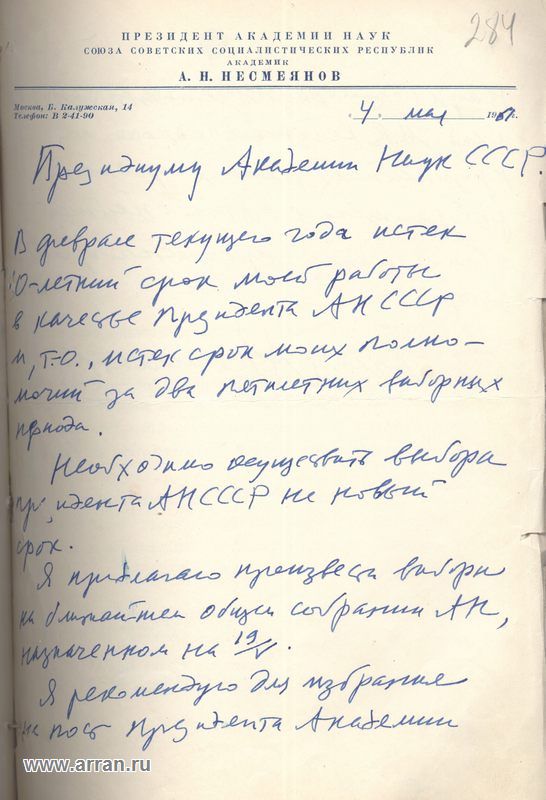 284
ПРЕЗИДЕНТ АКАДЕМИИ НАУК
СОЮЗА СОВЕТСКИХ СОЦИАЛИСТИЧЕСКИХ РЕСПУБЛИК
АКАДЕМИК
А. Н. НЕСМЕЯНОВ
Москва, Б. Калужская, 14
Телефон: В 2-41-90
„ 4 " мая 1961 г.
Президиуму Академии Наук СССР.
В феврале текущего года истек
10-летний срок моей работы
в качестве Президента АН СССР
и, т.о., истек срок моих полно-
мочий за два пятилетних выборных
периода.
Необходимо осуществить выборы
президента АН СССР на новый
срок.
Я предлагаю произвести выборы
на ближайшем общем собрании АН,
назначенном на 19/V.
Я рекомендую для избрания
на пост Президента Академии
www.arran.ru